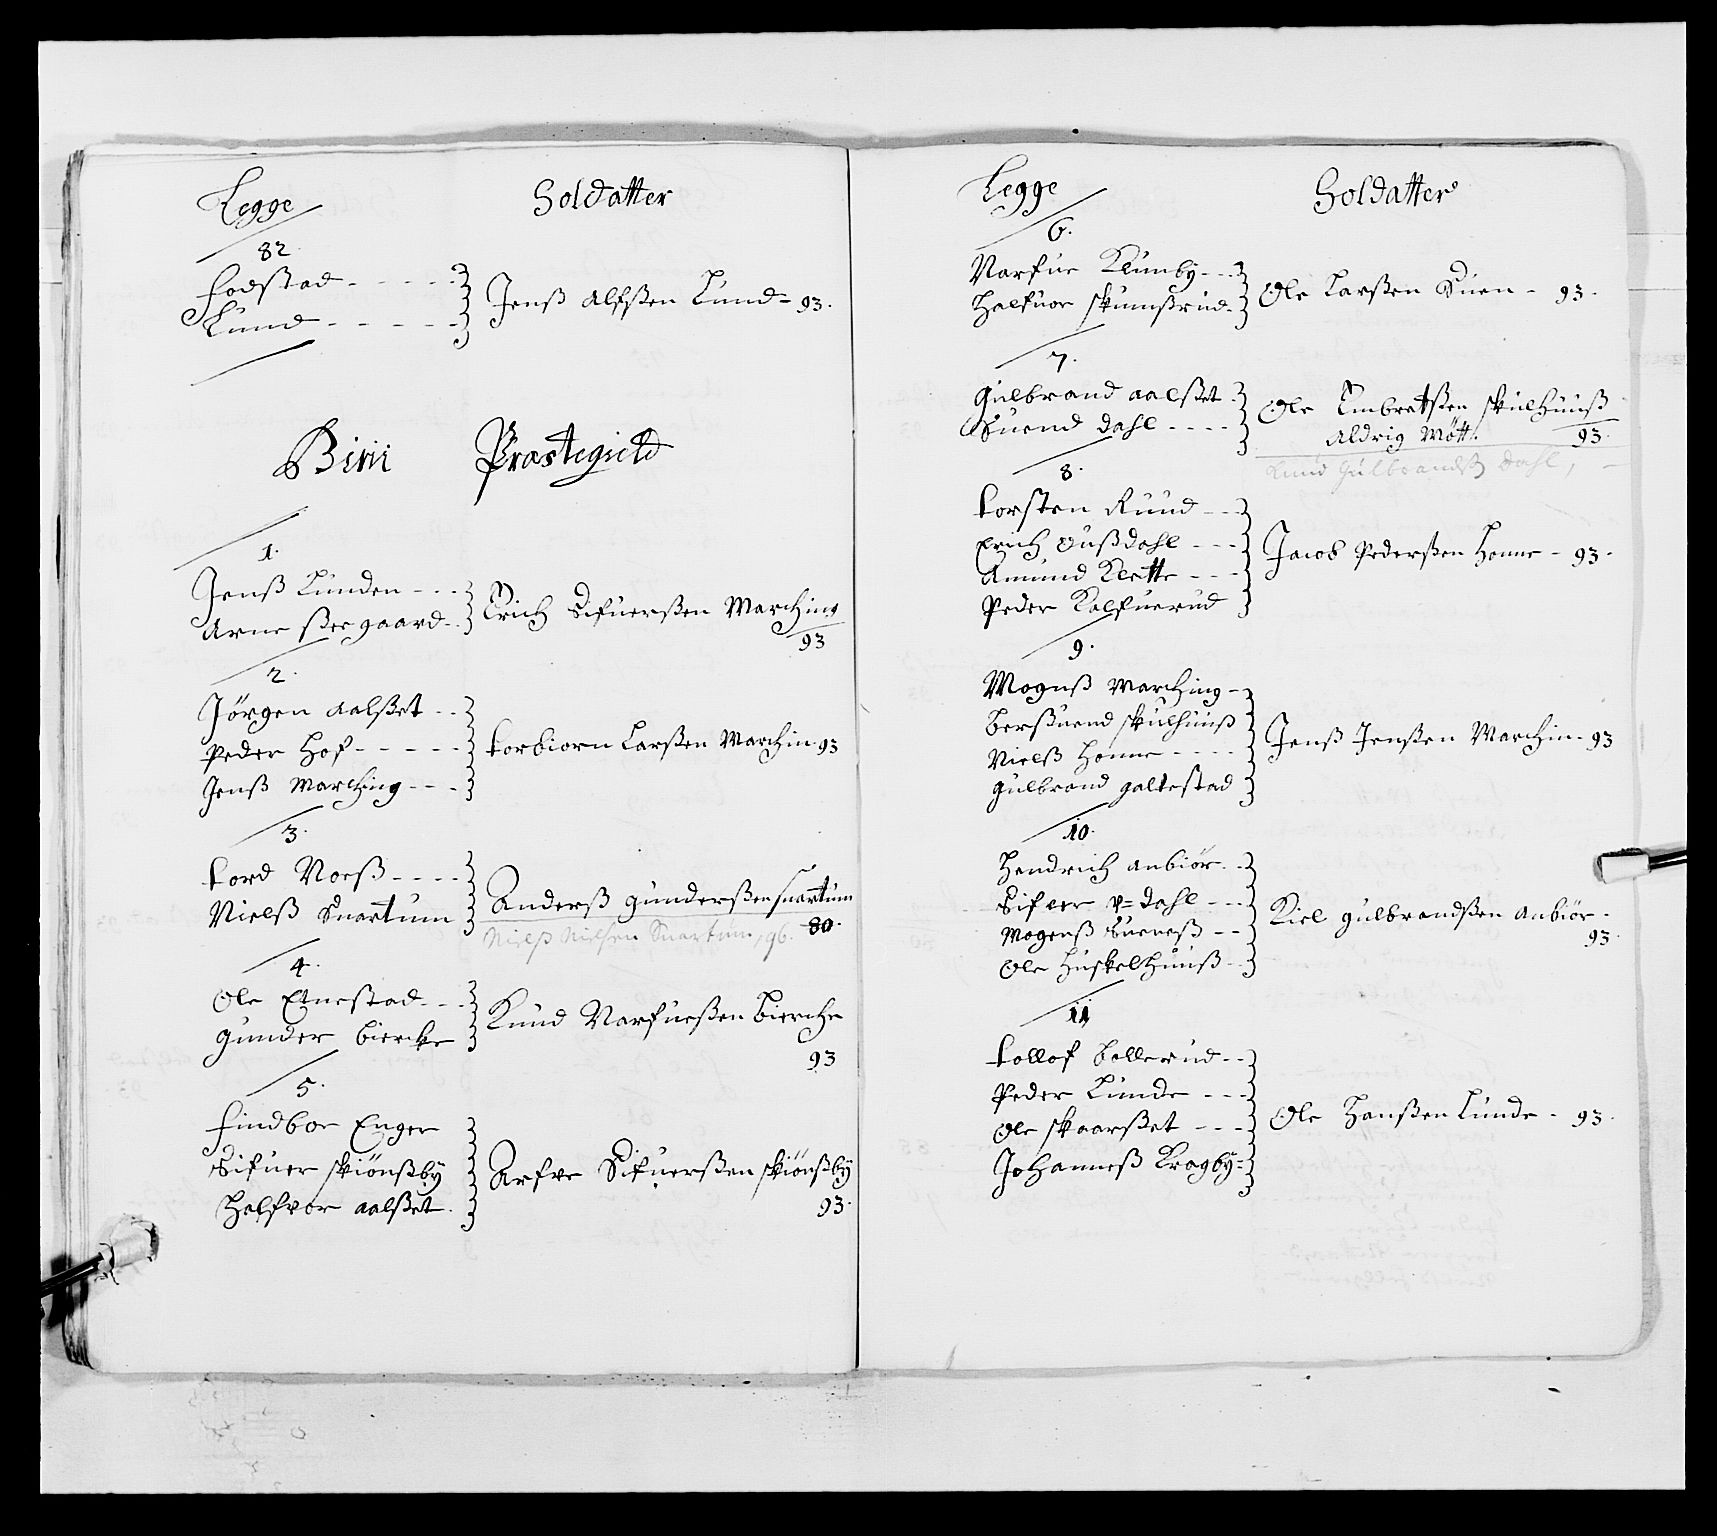 Legge Soldatter
82
Fodstad
Lund
Jenß Alfßen Lund 93.
Biri Præstegield
1.
Jenß Lunden
Arne ßeegaard
Erich Sifuerßen Marching
93
2.
Jörgen Aalßet
Peder Hof
Jenß Marching
Torbiorn Larßen Marchin 93
3.
Tord Noeß
Nielß Snartum
Anderß Gunderßen Snartum
80.
Nielß Nielsen Snartum, 96.
4.
Ole Etnestad
Gunder Biercke
Knud Narfueßen Bierche
93
5.
Findbor Enger
Sifuer Skiönßby
Halfvor Aalßet
Arfve Sifuerßen Skiönßby
93.
Legge Soldatter
6.
Narfue Klunby
Halfuor Skumßrud
Ole Larßen Suen 93.
7.
Gulbrand Aalßet
Suend Dahl
Ole Embretßen Skulhuuß
Aldrig Mött. 93.
Knud Gulbrandß Dahl,
8.
Torsten Ruud
Erich Oußdahl
Amund Klette
Peder Kalfuerud
Jacob Pederßen Honne 93.
9.
Mognß Marching
Berßuend Skulhuuß
Nielß Honne
Gulbrand Galtestad
Jenß Jenßen Marchin 93
10.
Hendrich Anbiör
Sifver P= Dahl
Mogenß Sueneß
Ole Huskelhuuß
Kiel Gulbrandßen Anbiör
93.
11
Tollof Bollerud
Peder Lunde
Ole Skaarßet
Johanneß Kragby
Ole Hanßen Lunde 93.